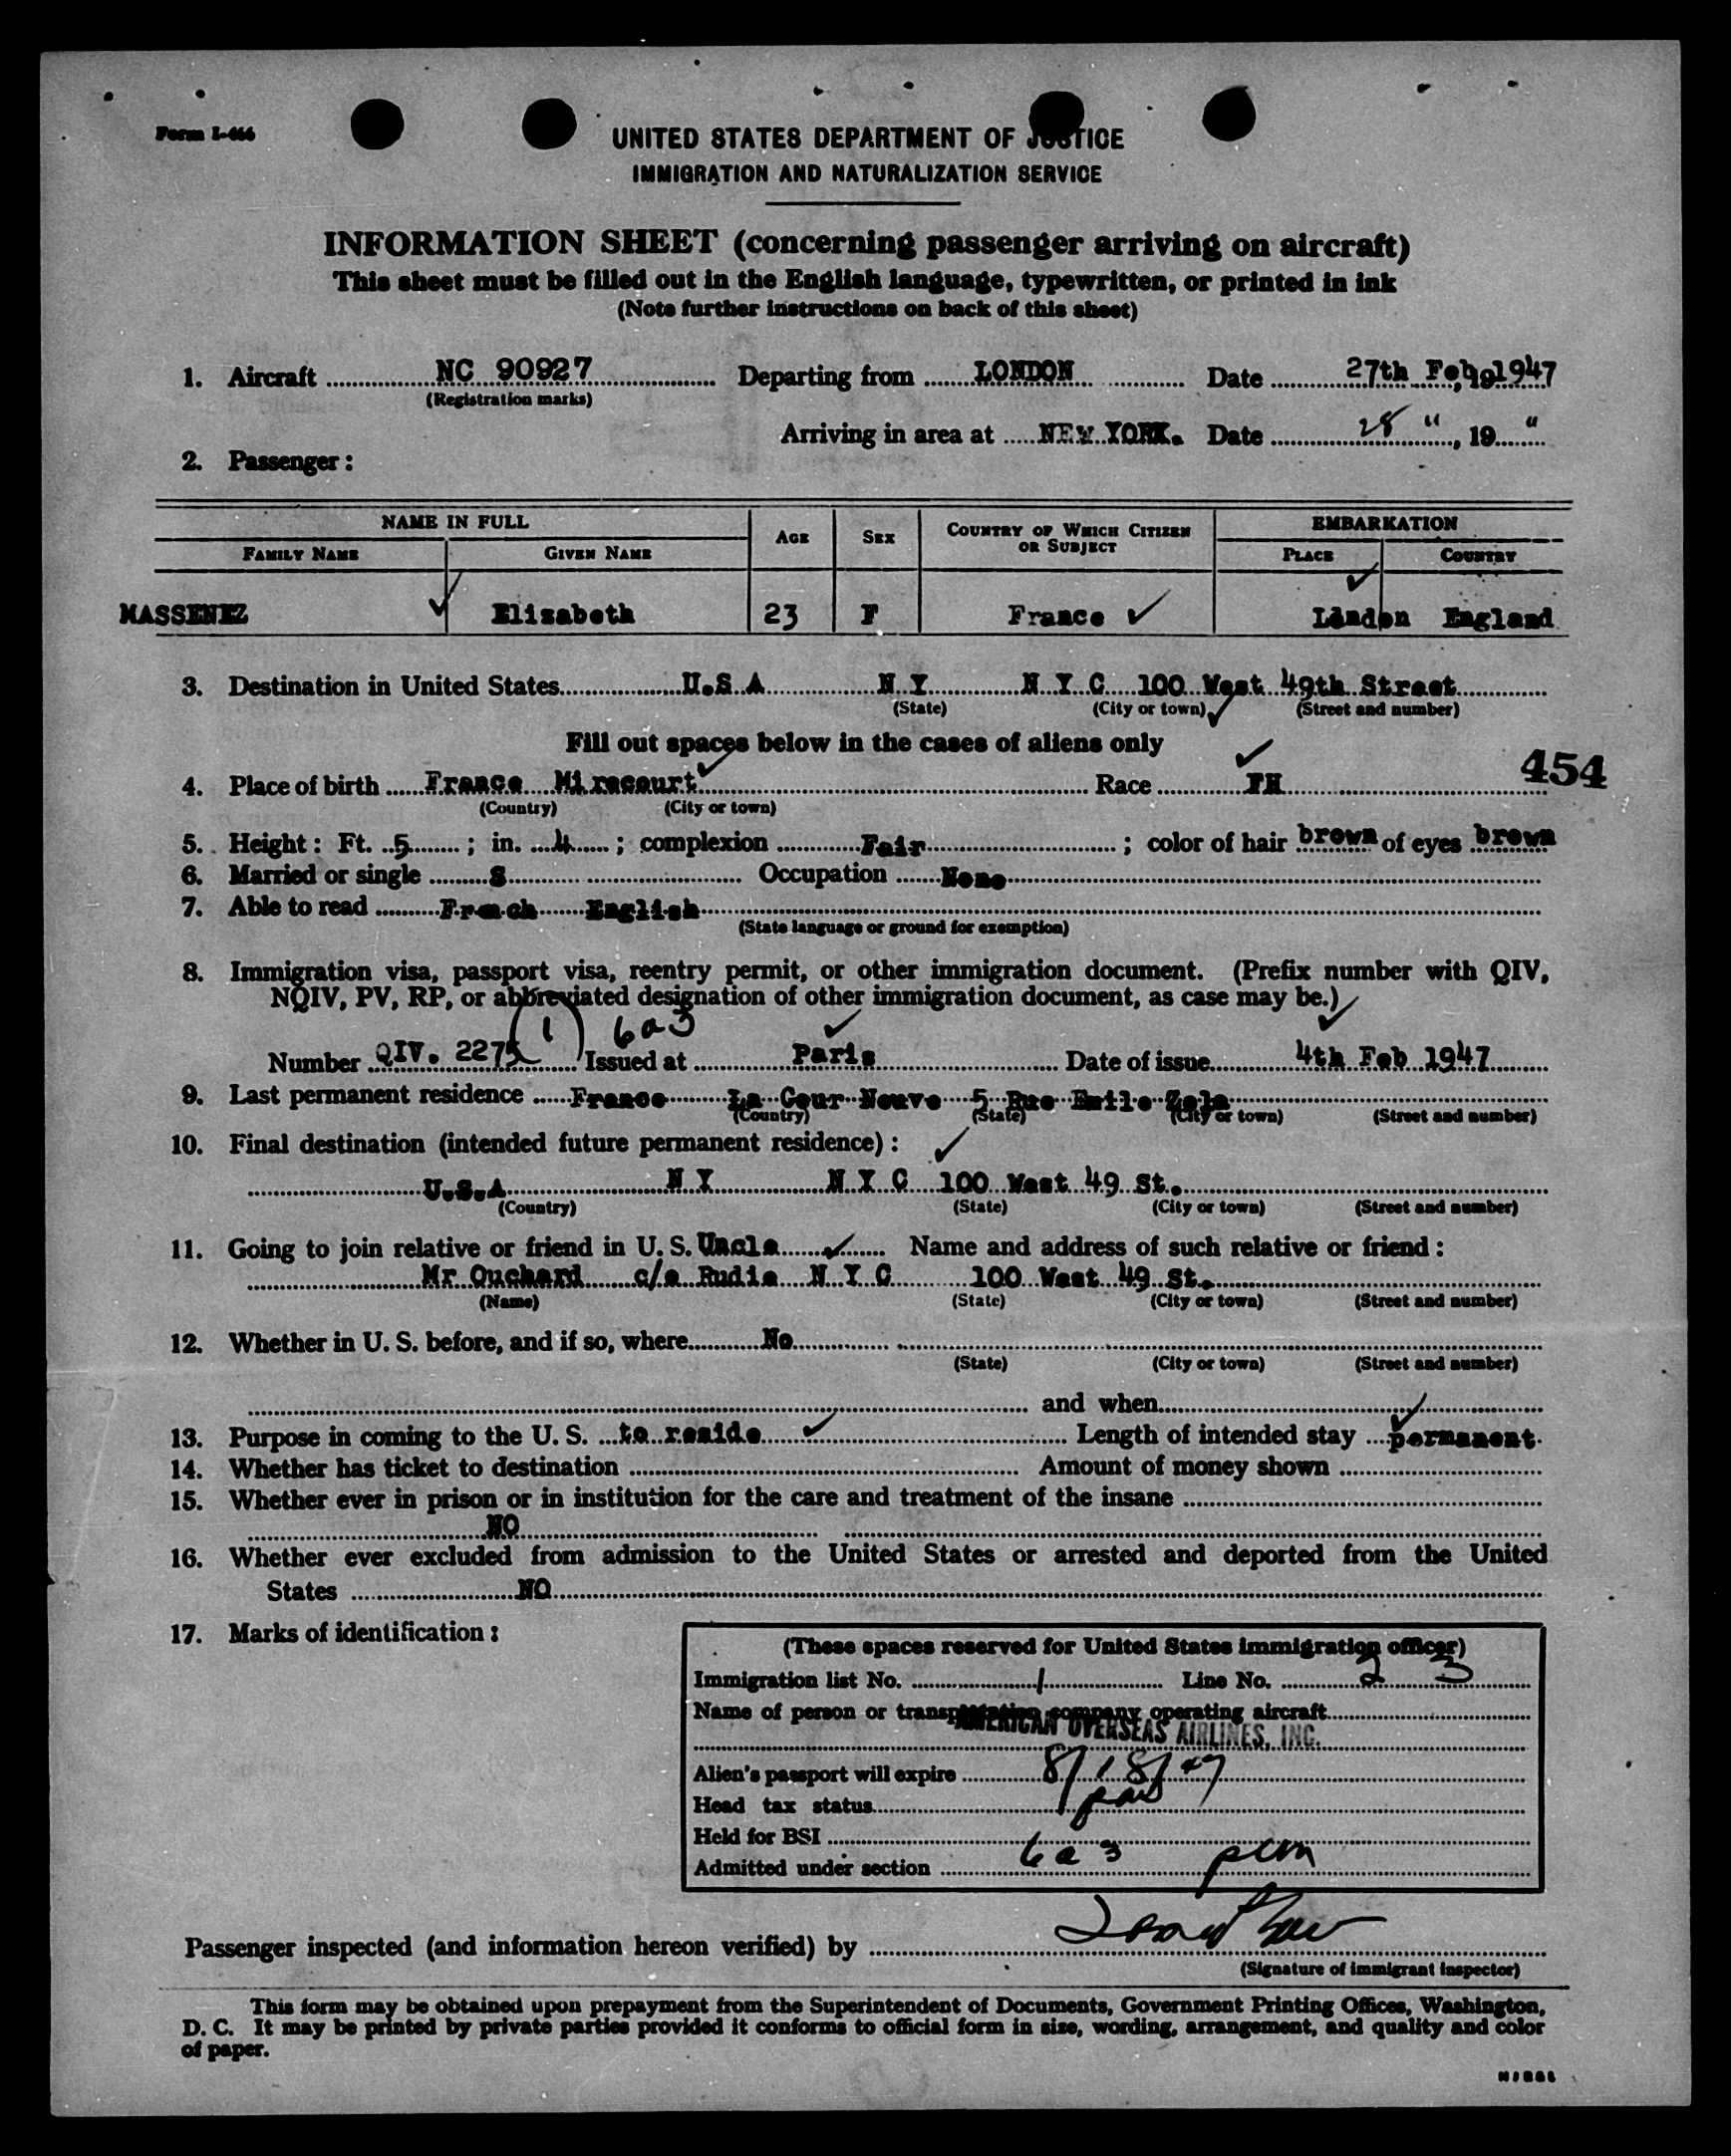 Form I-466
UNITED STATES DEPARTMENT OF JUSTICE
IMMIGRATION AND NATURALIZATION SERVICE
INFORMATION SHEET (concerning passenger arriving on aircraft)
This sheet must be filled out in the English language, typewritten, or printed in ink
(Note further instructions on back of this sheet)
1. Aircraft NC 90927 Departing from LONDON Date 27th Feb, 19 1947
(Registration marks)
Arriving in area at NEW YORK. Date 28 ", 19 "
2. Passenger:
NAME IN FULL AGE SEX COUNTRY OF WHICH CITIZEN OR SUBJECT EMBARKATION
FAMILY NAME GIVEN NAME PLACE COUNTRY
MASSENEZ Elizabeth 23 F France London England
3. Destination in United States U.S A N Y N Y C 100 West 49th Street
(State) (City or town) (Street and number)
Fill out spaces below in the cases of aliens only
454
4. Place of birth France Mirecourt Race FH
(Country) (City or town)
5. Height: Ft. 5; in. 4; complexion Fair; color of hair brown of eyes brown
6. Married or single S Occupation None
7. Able to read French English
(State language or ground for exemption)
8. Immigration visa, passport visa, reentry permit, or other immigration document. (Prefix number with QIV,
NQIV, PV, RP, or abbreviated designation of other immigration document, as case may be.)
(1) 6a3
Number QIV. 2275 Issued at Paris Date of issue 4th Feb 1947
9. Last permanent residence France La Cour Neuve 5 Rue Emile Zola
(Country) (State) (City or town) (Street and number)
10. Final destination (intended future permanent residence):
U.S.A N Y N Y C 100 West 49 St.
(Country) (State) (City or town) (Street and number)
11. Going to join relative or friend in U. S. Uncle Name and address of such relative or friend:
Mr Ouchard c/o Rudie N Y C 100 West 49 St.
(Name) (State) (City or town) (Street and number)
12. Whether in U. S. before, and if so, where No
(State) (City or town) (Street and number)
and when
13. Purpose in coming to the U. S. to reside Length of intended stay permanent
14. Whether has ticket to destination Amount of money shown
15. Whether ever in prison or in institution for the care and treatment of the insane
NO
16. Whether ever excluded from admission to the United States or arrested and deported from the United
States NO
17. Marks of identification:
(These spaces reserved for United States immigration officer)
Immigration list No. 1 Line No. 2 3
Name of person or transportation company operating aircraft
AMERICAN OVERSEAS AIRLINES, INC.
Alien's passport will expire 8/18/47
Head tax status pd
Held for BSI
Admitted under section 6 a 3 pcm
Passenger inspected (and information hereon verified) by
(Signature of immigrant inspector)
This form may be obtained upon prepayment from the Superintendent of Documents, Government Printing Offices, Washington,
D. C. It may be printed by private parties provided it conforms to official form in size, wording, arrangement, and quality and color
of paper.